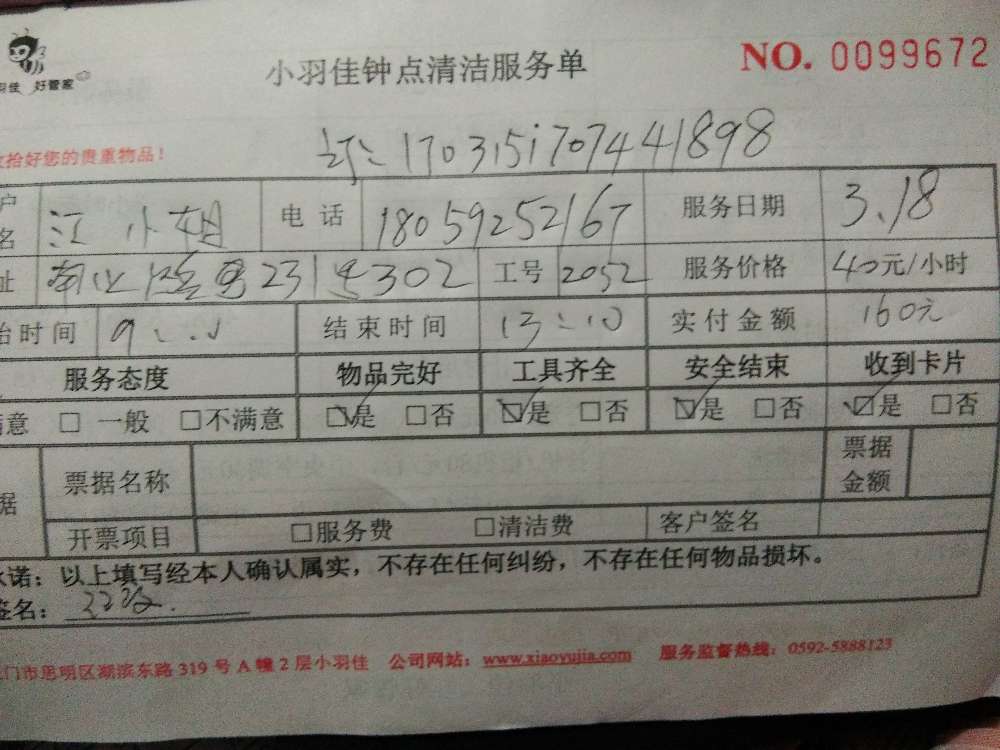 小羽佳钟点清洁服务单 NO. 0099672
羽佳 好管家
收拾好您的贵重物品！
170315170744 41898
户名 江小姐 电话 18059252167 服务日期 3.18
址 231 302 工号 2052 服务价格 40元/小时
始时间 9 结束时间 13:10 实付金额 160元
服务态度 物品完好 工具齐全 安全结束 收到卡片
满意 □ 一般 □不满意 ☑是 □否 ☑是 □否 ☑是 □否 ☑是 □否
据 票据名称 票据金额
开票项目 □服务费 □清洁费 客户签名
承诺：以上填写经本人确认属实，不存在任何纠纷，不存在任何物品损坏。
签名：
门市思明区湖滨东路 319 号 A 幢 2 层小羽佳 公司网站：www.xiaoyujia.com 服务监督热线：0592-5888123